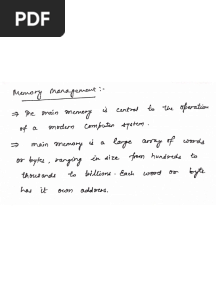 PDF
Memory Management :-
⇒ The main memory is central to the operation
of a modern computer system.
⇒ main memory is a large array of words
or bytes, ranging in size from hundreds to
thousands to billions. Each word or byte
has it own address.